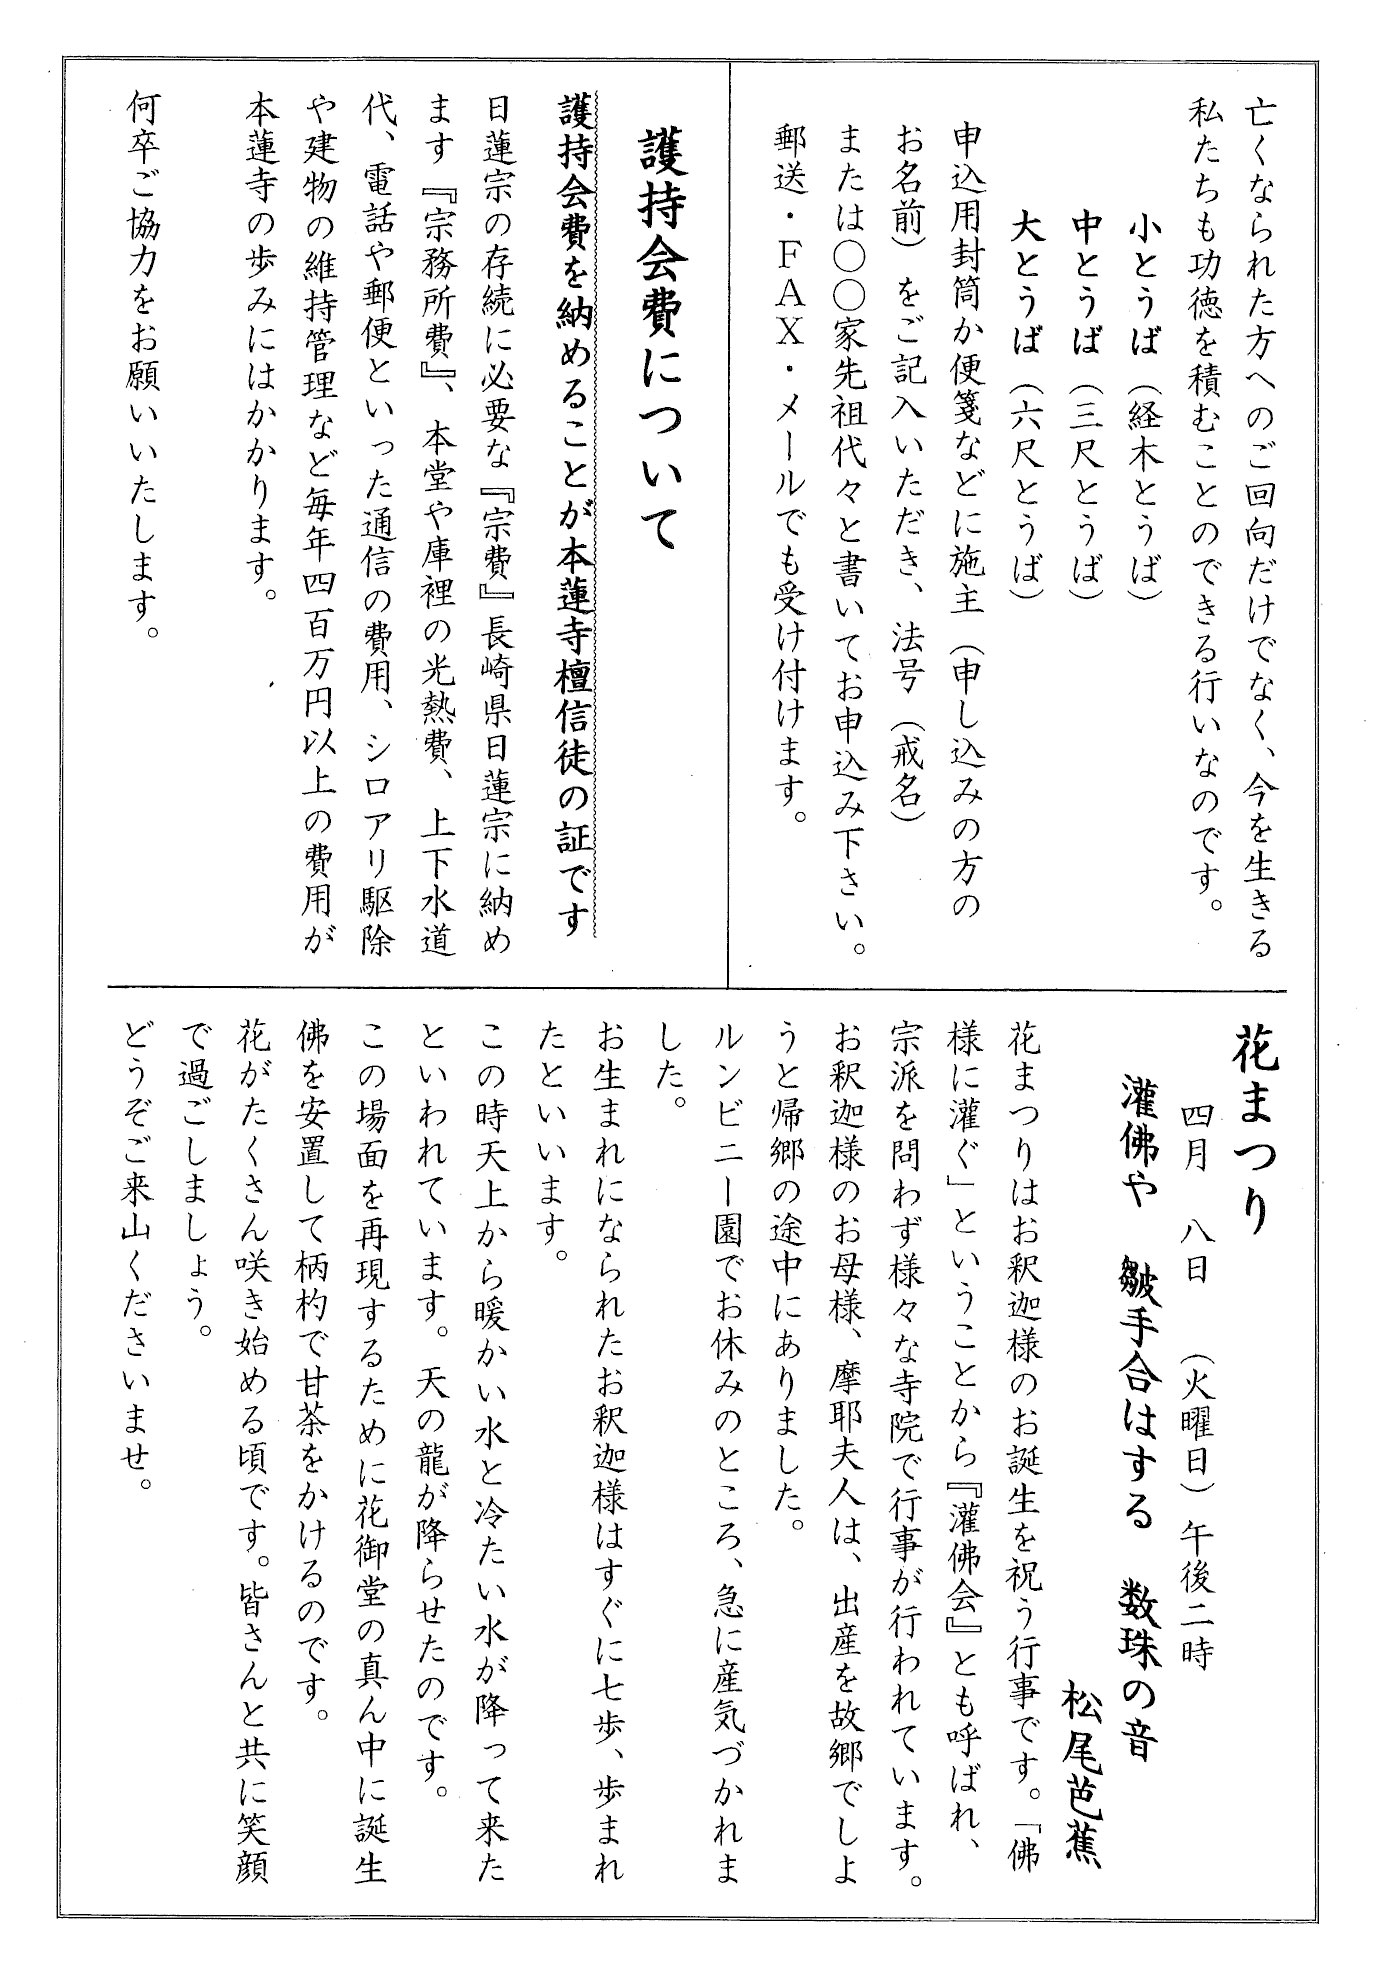 亡くなられた方へのご回向だけでなく、今を生きる
私たちも功徳を積むことのできる行いなのです。
小とうば（経木とうば）
中とうば（三尺とうば）
大とうば（六尺とうば）
申込用封筒か便箋などに施主（申し込みの方の
お名前）をご記入いただき、法号（戒名）
または〇〇家先祖代々と書いてお申込み下さい。
郵送・ＦＡＸ・メールでも受け付けます。
護持会費について
護持会費を納めることが本蓮寺檀信徒の証です
日蓮宗の存続に必要な『宗費』長崎県日蓮宗に納め
ます『宗務所費』、本堂や庫裡の光熱費、上下水道
代、電話や郵便といった通信の費用、シロアリ駆除
や建物の維持管理など毎年四百万円以上の費用が
本蓮寺の歩みにはかかります。
何卒ご協力をお願いいたします。
花まつり
四月　八日　（火曜日）午後二時
灌佛や　皺手合はする　数珠の音
松尾芭蕉
花まつりはお釈迦様のお誕生を祝う行事です。「佛
様に灌ぐ」ということから『灌佛会』とも呼ばれ、
宗派を問わず様々な寺院で行事が行われています。
お釈迦様のお母様、摩耶夫人は、出産を故郷でしよ
うと帰郷の途中にありました。
ルンビニー園でお休みのところ、急に産気づかれま
した。
お生まれになられたお釈迦様はすぐに七歩、歩まれ
たといいます。
この時天上から暖かい水と冷たい水が降って来た
といわれています。天の龍が降らせたのです。
この場面を再現するために花御堂の真ん中に誕生
佛を安置して柄杓で甘茶をかけるのです。
花がたくさん咲き始める頃です。皆さんと共に笑顔
で過ごしましょう。
どうぞご来山くださいませ。